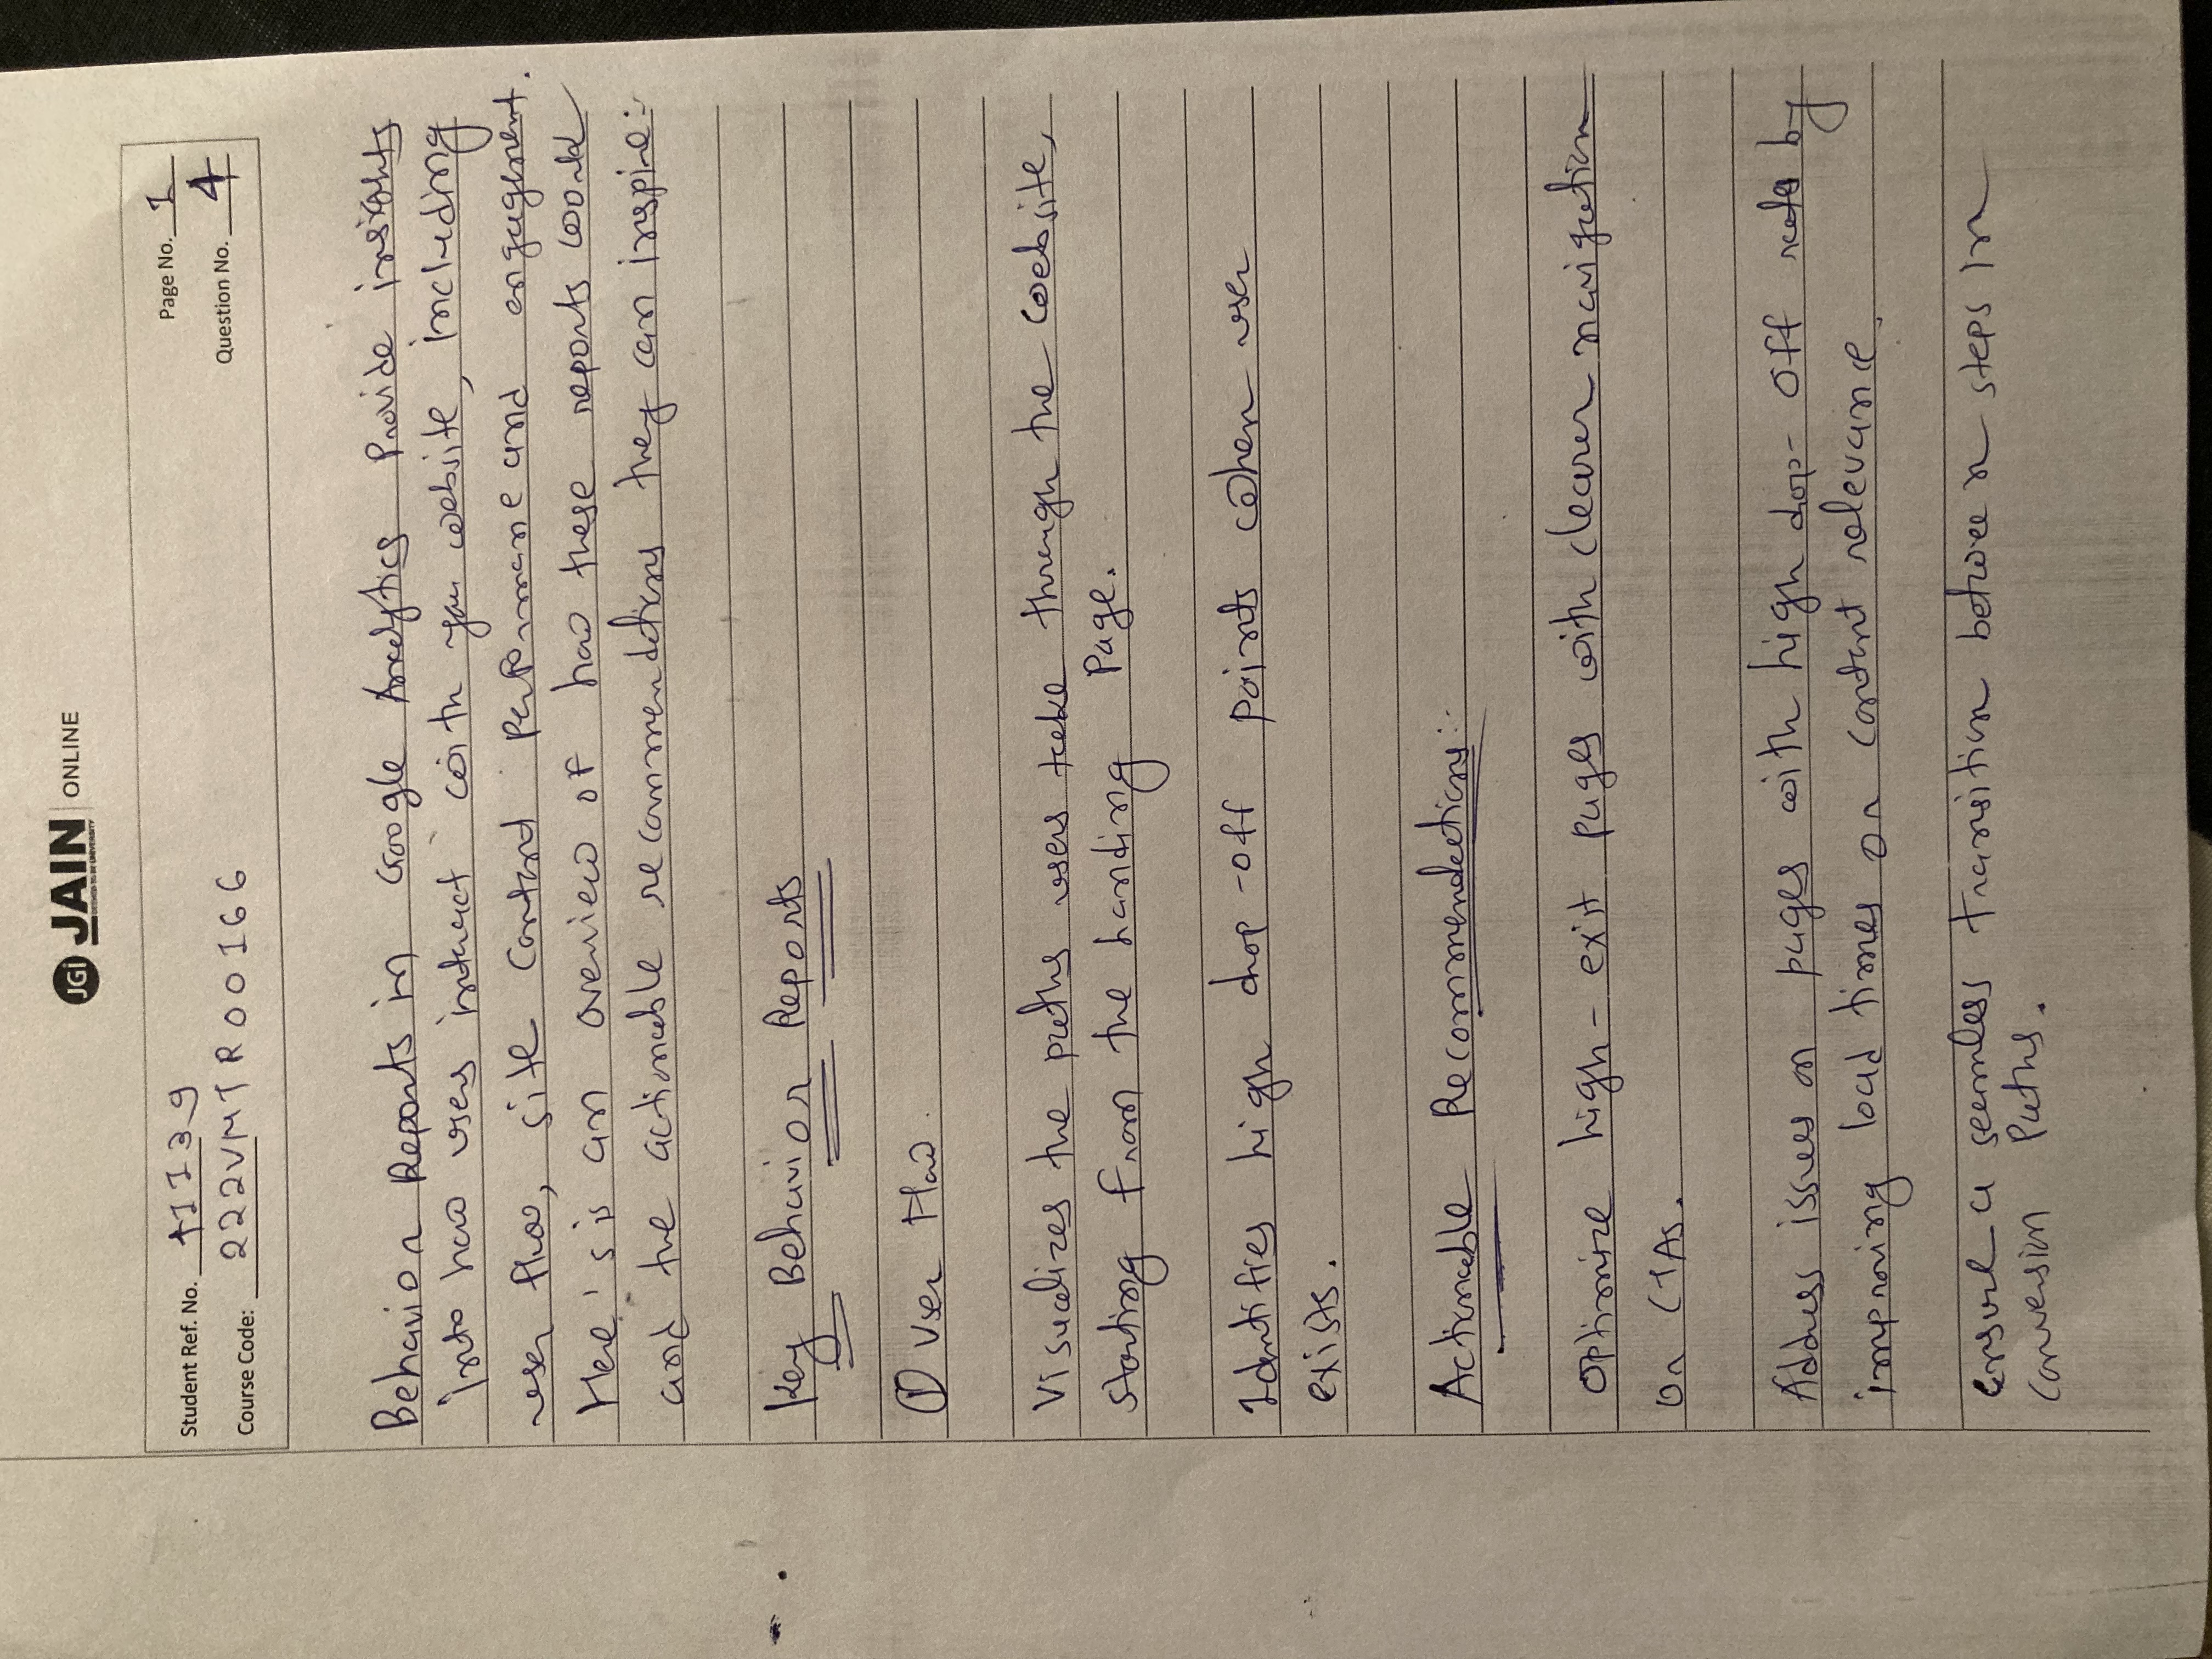 JGi JAIN ONLINE
DEEMED-TO-BE UNIVERSITY
Student Ref. No. 41139
Page No. 1
Course Code: 222VMTR00166
Question No. 4
Behavior Reports in Google Analytics Provide insights
into how users interact with your website, including
user flow, site content performance and engagement.
Here's is an overview of how these reports work
and the actionable recommendations they can inspire:-
Key Behavior Reports
① User Flow.
Visualizes the paths users take through the website,
starting from the landing Page.
Identifies high drop-off points when user
exists.
Actionable Recommendations:-
Optimize high-exit pages with clearer navigation
or CTAs.
Address issues on pages with high drop-off rates by
improving load times or content relevance.
Ensure a seamless transition between steps in
conversion Paths.